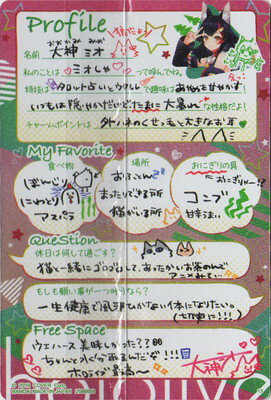 Profile
おおかみ みお
名前 大神 ミオ
私のことは ミオしゃ って呼んでね。
特技は タロット占いとウクレレ で趣味は あやかをかせかす
いつもは穏やかだけどたまに大暴れ な性格だよ!
チャームポイントは 外ハネのくせっ毛と大きなお耳
My Favorite
食べ物
場所
おにぎりの具
おふとん
まったりできる所
猫がいる所
コンブ
甘辛うまい
アスパラ
Question
休日は何して過ごす?
猫と一緒にゴロゴロして、あったかいお茶のんで
アニメみてぃ
もしも願い事が一つ叶うなら…
一生健康で風邪ひかない体になりたい。
Free Space
ウエハース美味しかった??
ちゃんと歯みがくんだぞ!!!
ホロライブ最高〜
大神ミオ
BANDAI MADE IN JAPAN
hololive